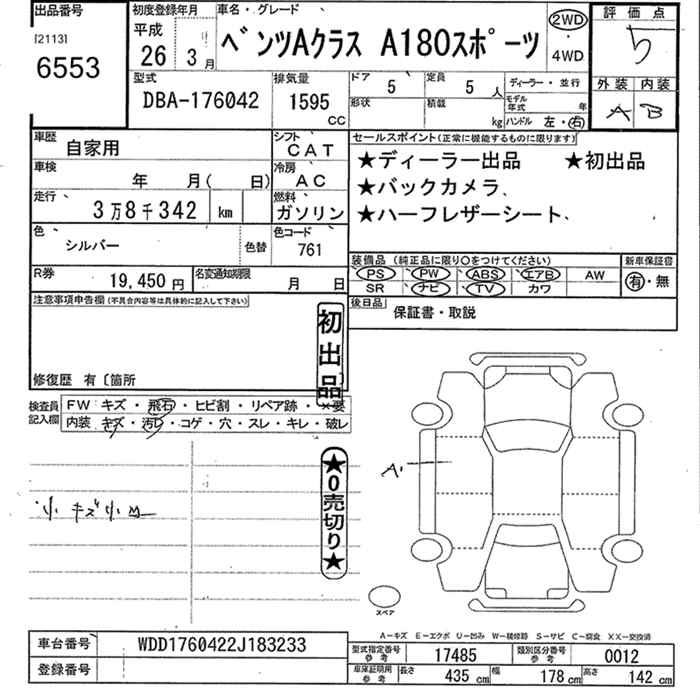 出品番号
[2113]
6553
初度登録年月
平成
26年 3月
車名・グレード
ベンツAクラス A180スポーツ
2WD
・
4WD
評価点
5
外装 内装
A B
型式
DBA-176042
排気量
1595
CC
ドア
5
定員
5人
形状
積載
kg
ディーラー・並行
モデル年式 年
ハンドル 左・右
車歴
自家用
シフト
CAT
車検
年 月( 日)
冷房
AC
走行
3万8千342 km
燃料
ガソリン
色
シルバー
色替
色コード
761
R券
19,450円
名変通知期限
月 日
セールスポイント(正常に機能するものに限ります)
★ディーラー出品 ★初出品
★バックカメラ、
★ハーフレザーシート、
装備品 (純正品に限り○をつけてください)
新車保証書
PS PW ABS エアB AW
SR ナビ TV カワ
有・無
後日品
保証書・取説
注意事項申告欄(不具合内容等は具体的に記入して下さい)
初出品
修復歴 有〔箇所
検査員記入欄
FW キズ・飛石・ヒビ割・リペア跡・×要
内装 キズ・汚レ・コゲ・穴・スレ・キレ・破レ
★0売切り★
小キズ小凹
A1
スペア
A−キズ E−エクボ U−凹み W−補修跡 S−サビ C−腐食 XX−交換済
車台番号
WDD1760422J183233
登録番号
型式指定番号
参考
17485
類別区分番号
参考
0012
車庫証明用
参考
長さ 435 cm
幅 178 cm
高さ 142 cm